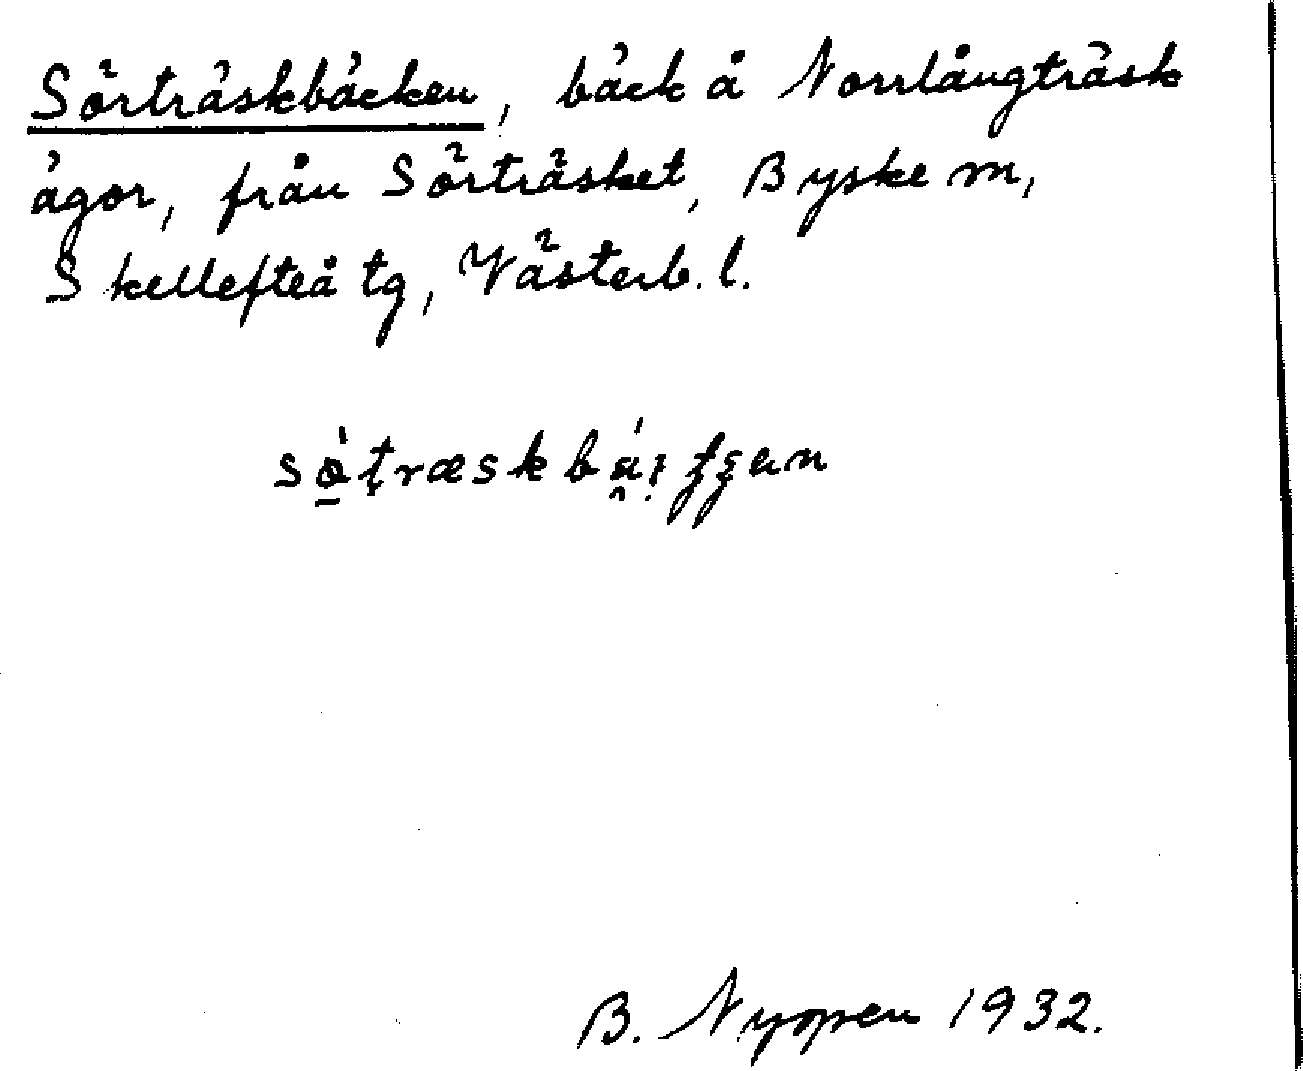 Sörträskbäcken, bäck å Norrlångträsk
ägor, från Sörträsket, Byske sn,
Skellefteå tg, Västerb. l.
B. Nyopen 1932.